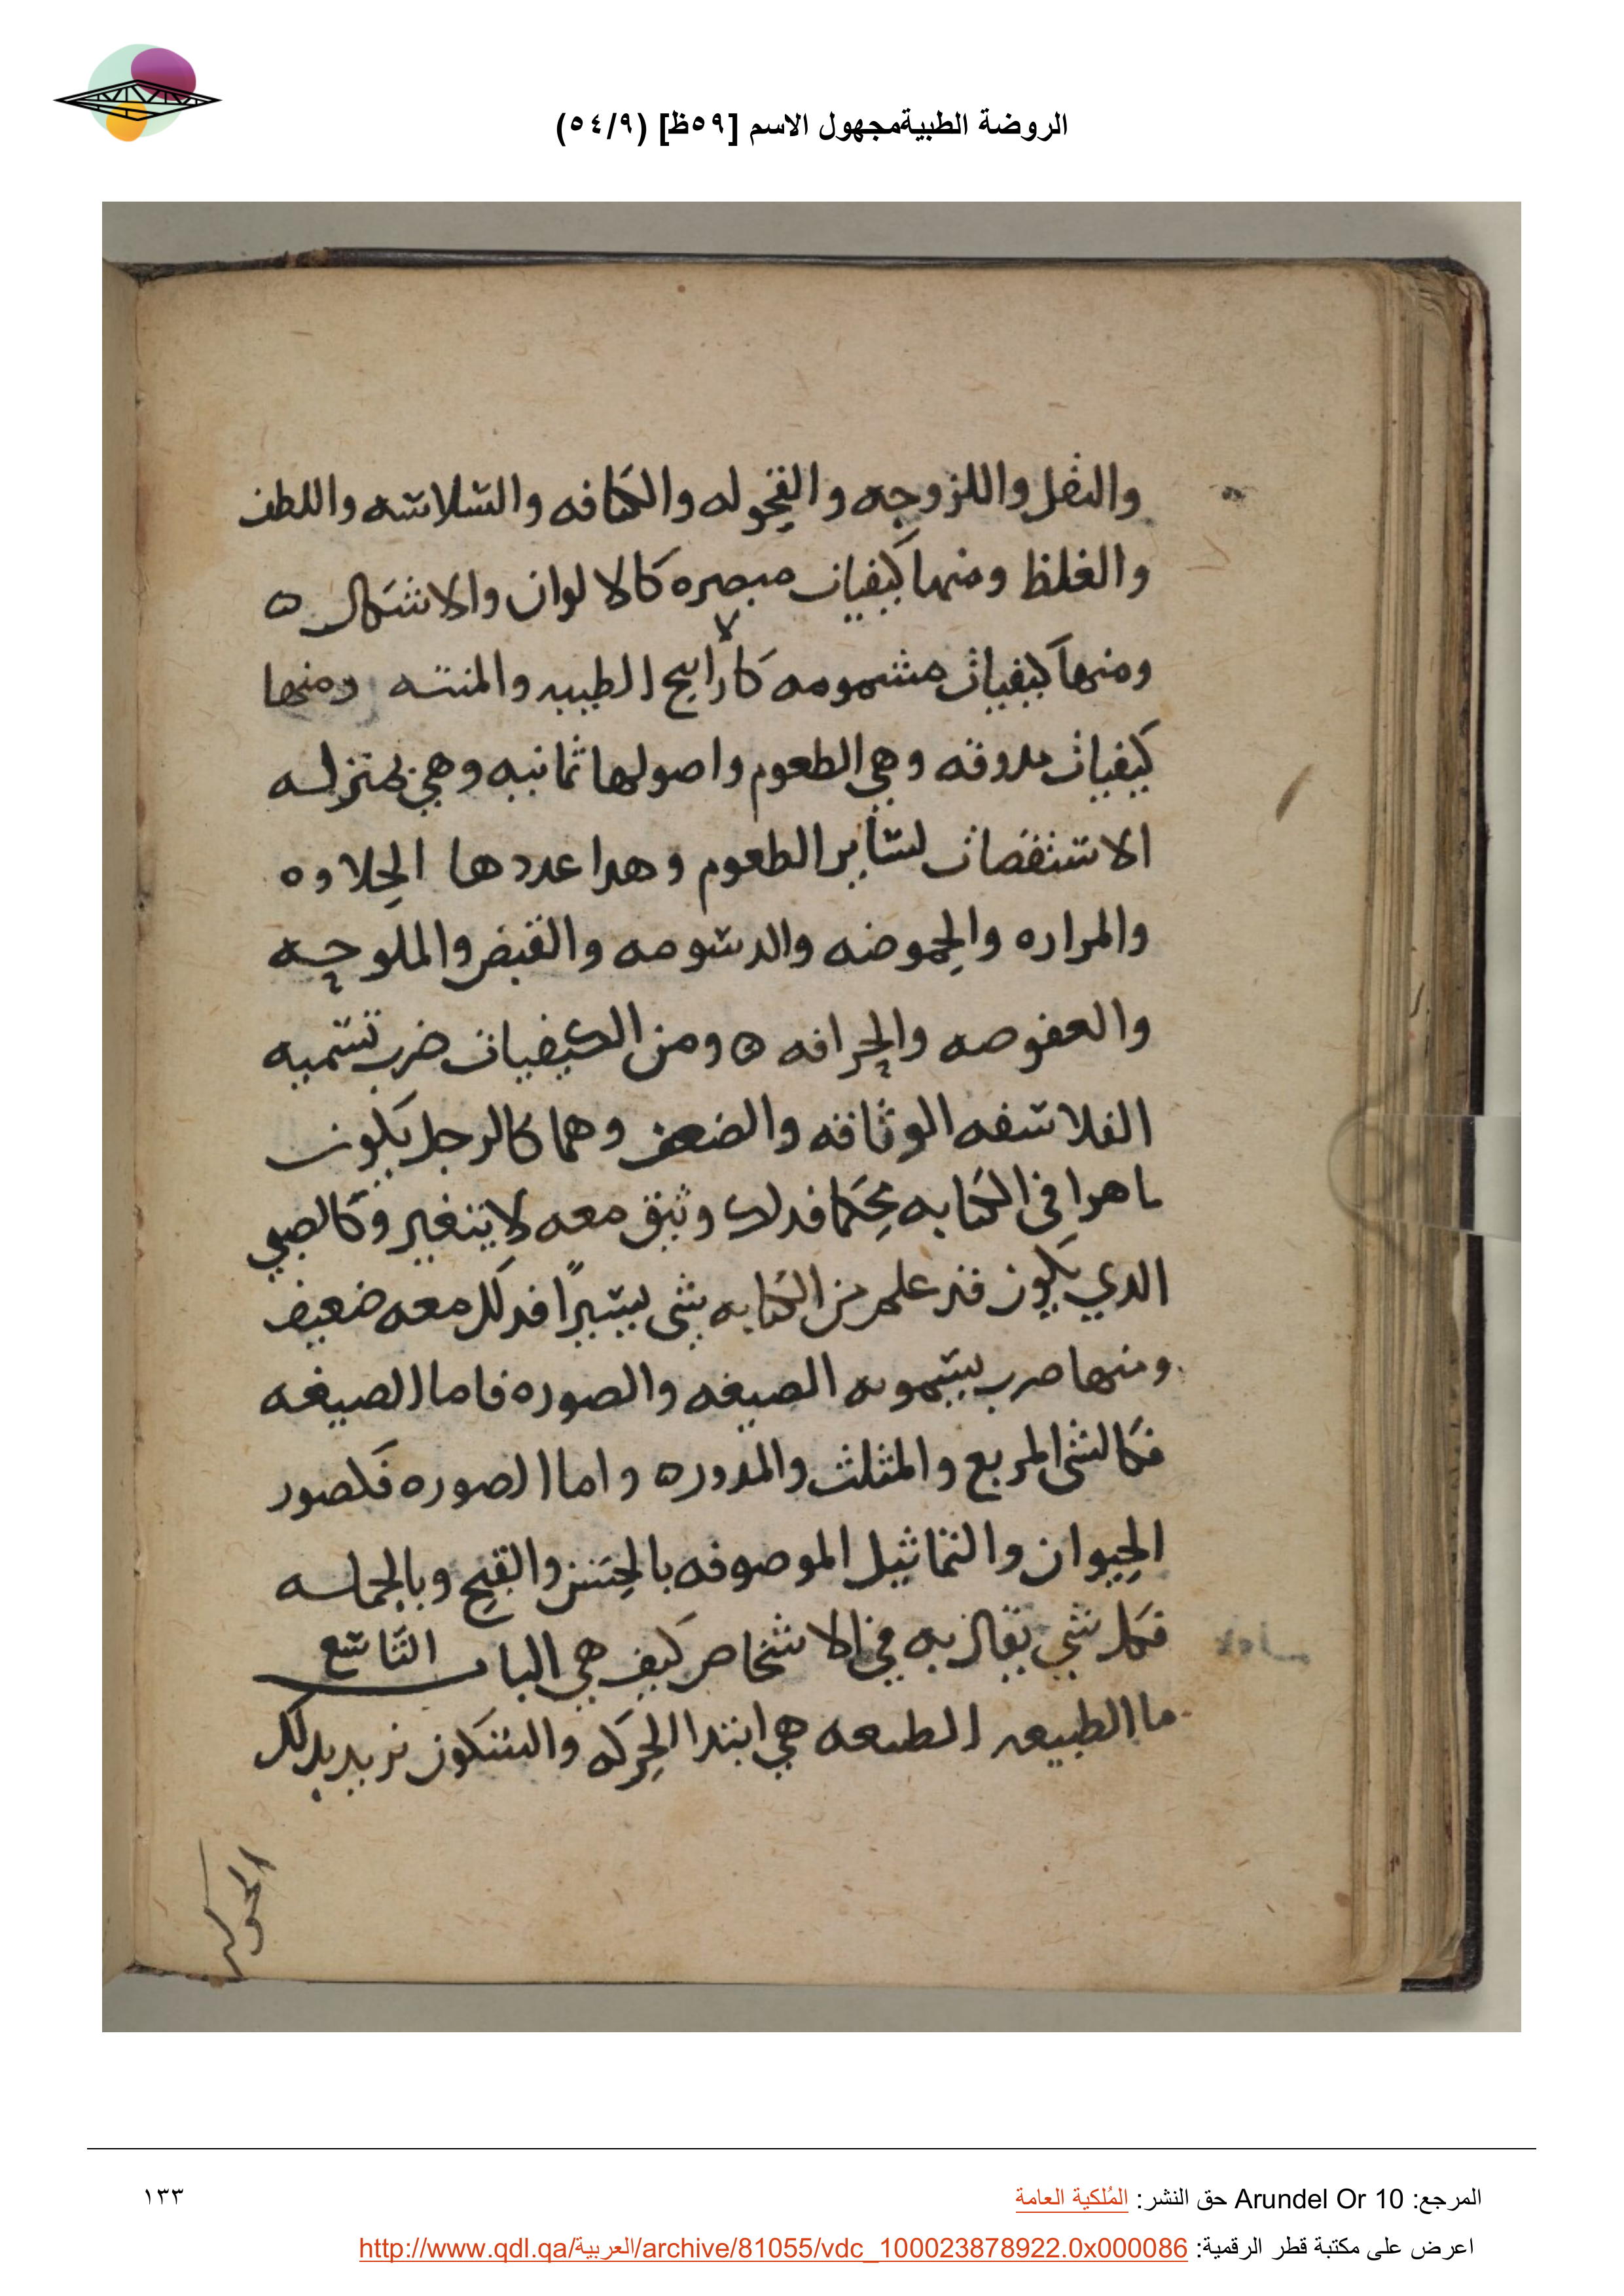 الروضة الطبيةمجهول الاسم [٥٩ظ] (٥٤/٩)
والثقل واللزوجه والقحوله والكثافه والسلاسه واللطف
والغلظ ومنها كيفيات مبصره كالالوان والاشكال ه
ومنها كيفيات مشمومه كالرايح الطيبه والمنتنه ومنها
كيفيات مدوقه وهي الطعوم واصولها ثمانيه وهي بمنزله
الاستقصات لساير الطعوم وهدا عددها الحلاوه
والمراره والحموضه والدسومه والقبض والملوحه
والعفوصه والحرافه ه ومن الكيفيات ضرب تسميه
الفلاسفه الوثاقه والضعف وهما كالرجل يكون
ماهرا في الكتابه محكما فدلك وثيق معه لا يتغير وكالصبي
الدي يكون قد علم من الكتابه شي يسيرًا فدلك معه ضعيف
ومنها ضرب يسمونه الصيغه والصوره فاما الصيغه
فكالشي المربع والمثلث والمدوره واما الصوره فكصور
الحيوان والتماثيل الموصوفه بالحسن والقبح وبالجمله
فكل شي يقال به في الاشخاص كيف هي الباب التاسع
ما الطبيعه الطبيعه هي ابتدا الحركه والسكون نريد بدلك
الحركه
المرجع: Arundel Or 10 حق النشر: المُلكية العامة
١٣٣
اعرض على مكتبة قطر الرقمية: http://www.qdl.qa/العربية/archive/81055/vdc_100023878922.0x000086